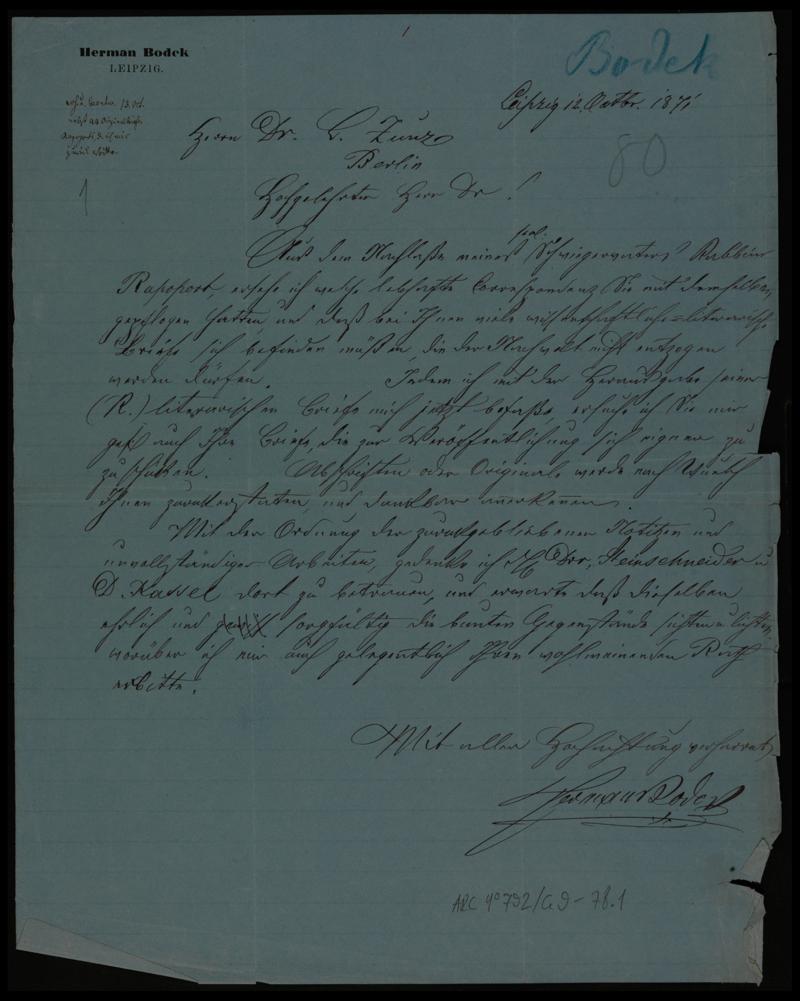 Bodek
Herman Bodek
LEIPZIG.
Leipzig 12. Octbr. 1871
13. Oct.
Herrn Dr. L. Zunz
80
Berlin
1
Hochgelehrter Herr Dr!
sel.
Aus dem Nachlaße meines Schwiegervaters Rabbiner
Rapoport, ersehe ich welche lebhafte Correspondenz Sie mit demselben
gepflogen hatten und daß bei Ihnen viele wissenschaftliche=literarische
Briefe sich befinden müßen, die der Nachwelt nicht entzogen
werden dürfen. Indem ich mit der Herausgabe seiner
(R.) literarischen Briefe mich jetzt befaße ersuche ich Sie mir
gefl auch Ihre Briefe, die zur Veröffentlichung sich eignen zu
zuschicken. Abschriften oder Originale werde nach Wunsch
Ihnen zurückerstatten, und dankbar anerkennen.
Mit der Ordnung der zurückgebliebenen Notitzen und
unvollständiger Arbeiten, gedenke ich HE Drr, Steinschneider u
D. Kassel dort zu betrauen, und erwarte daß dieselben
ehrlich und sorgfältig die bunten Gegenstände sichten u lichten,
worüber ich mir auch gelegentlich Ihren wohlmeinenden Rath
erbitte.
Mit aller Hochachtung verharret
Herman Bodek
ARC 4° 792/G9-78.1